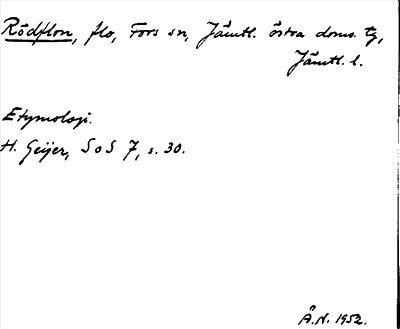 Rödflon, flo, Fors sn, Jämtl. östra doms. tg,
Jämtl. l.
Etymologi.
H. Geijer, SoS 7, s. 30.
Å.N. 1952.